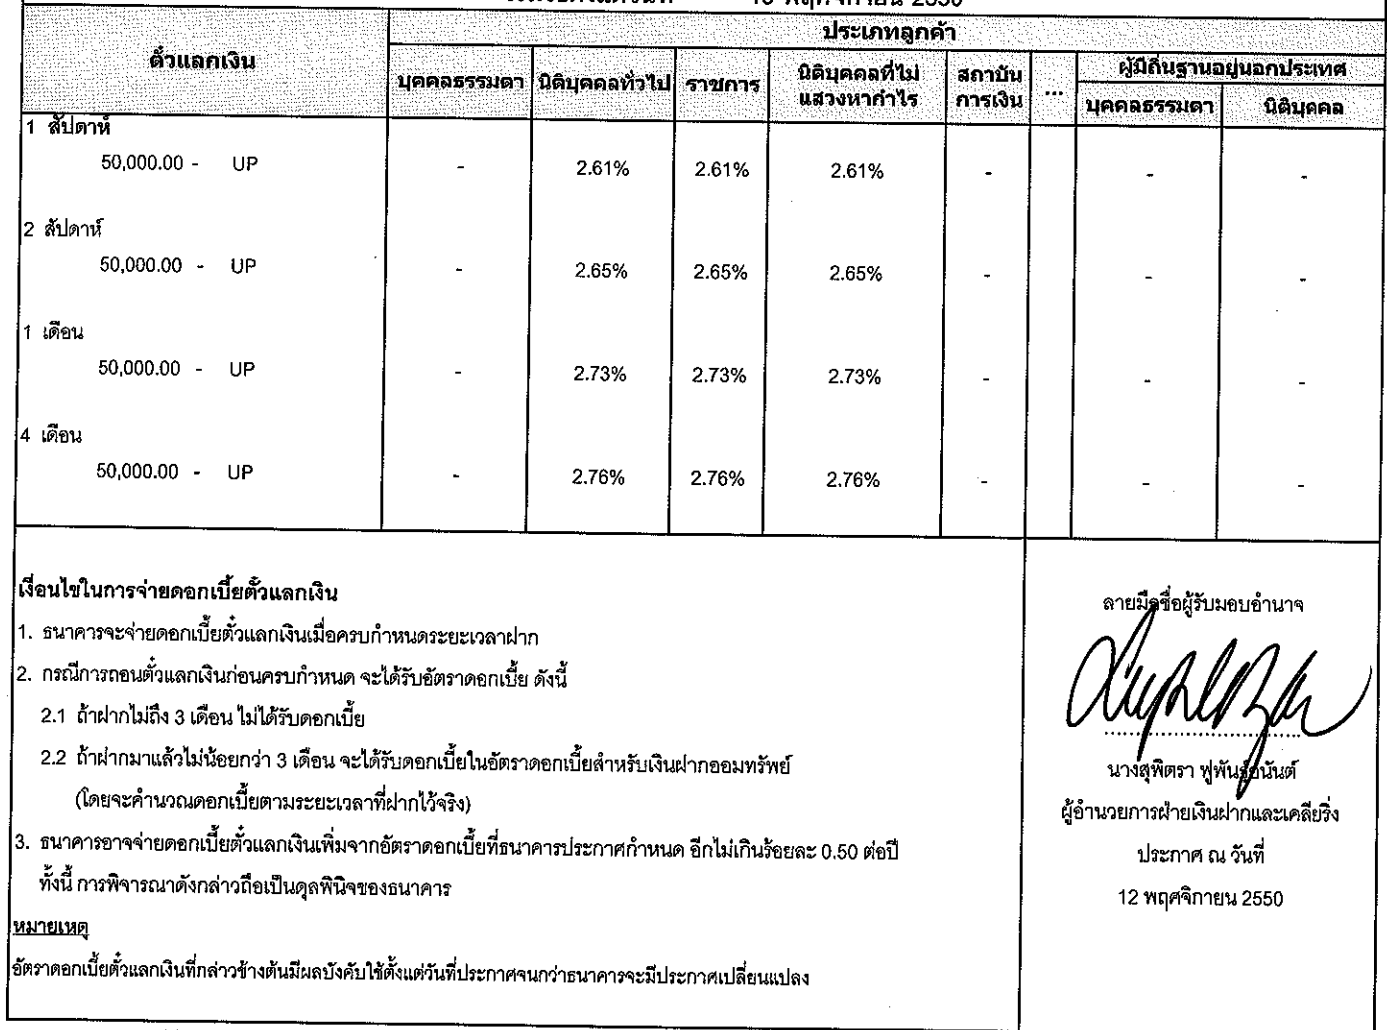 ประเภทลูกค้า
ตั๋วแลกเงิน
บุคคลธรรมดา นิติบุคคลทั่วไป ราชการ นิติบุคคลที่ไม่แสวงหากำไร สถาบันการเงิน ... ผู้มีถิ่นฐานอยู่นอกประเทศ
บุคคลธรรมดา นิติบุคคล
1 สัปดาห์
50,000.00 - UP - 2.61% 2.61% 2.61% - - -
2 สัปดาห์
50,000.00 - UP - 2.65% 2.65% 2.65% - - -
1 เดือน
50,000.00 - UP - 2.73% 2.73% 2.73% - - -
4 เดือน
50,000.00 - UP - 2.76% 2.76% 2.76% - - -
เงื่อนไขในการจ่ายดอกเบี้ยตั๋วแลกเงิน
1. ธนาคารจะจ่ายดอกเบี้ยตั๋วแลกเงินเมื่อครบกำหนดระยะเวลาฝาก
2. กรณีการถอนตั๋วแลกเงินก่อนครบกำหนด จะได้รับอัตราดอกเบี้ย ดังนี้
2.1 ถ้าฝากไม่ถึง 3 เดือน ไม่ได้รับดอกเบี้ย
2.2 ถ้าฝากมาแล้วไม่น้อยกว่า 3 เดือน จะได้รับดอกเบี้ยในอัตราดอกเบี้ยสำหรับเงินฝากออมทรัพย์
(โดยจะคำนวณดอกเบี้ยตามระยะเวลาที่ฝากไว้จริง)
3. ธนาคารอาจจ่ายดอกเบี้ยตั๋วแลกเงินเพิ่มจากอัตราดอกเบี้ยที่ธนาคารประกาศกำหนด อีกไม่เกินร้อยละ 0.50 ต่อปี
ทั้งนี้ การพิจารณาดังกล่าวถือเป็นดุลพินิจของธนาคาร
หมายเหตุ
อัตราดอกเบี้ยตั๋วแลกเงินที่กล่าวข้างต้นมีผลบังคับใช้ตั้งแต่วันที่ประกาศจนกว่าธนาคารจะมีประกาศเปลี่ยนแปลง
ลายมือชื่อผู้รับมอบอำนาจ
นางสุพิตรา ฟูพันธ์อนันต์
ผู้อำนวยการฝ่ายเงินฝากและเคลียริ่ง
ประกาศ ณ วันที่
12 พฤศจิกายน 2550